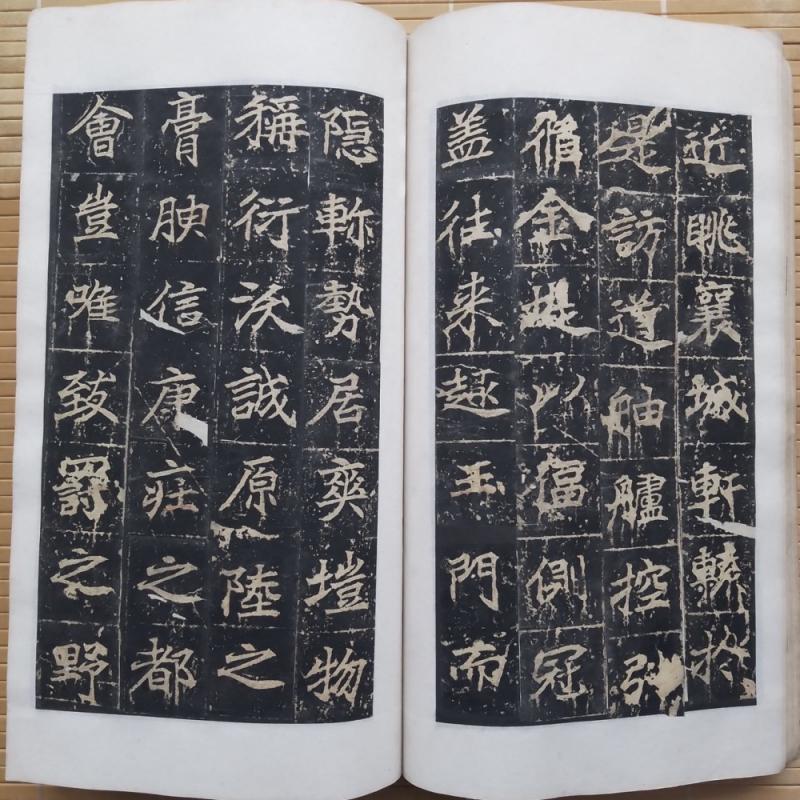 近眺襄城軒轅於
是訪道舳艫控
脩金堤以偪側冠
盖往来趍玉門而
隠軫勢居爽塏物
稱衍沃誠原陸之
膏腴信康莊之都
會豈唯致罰之野